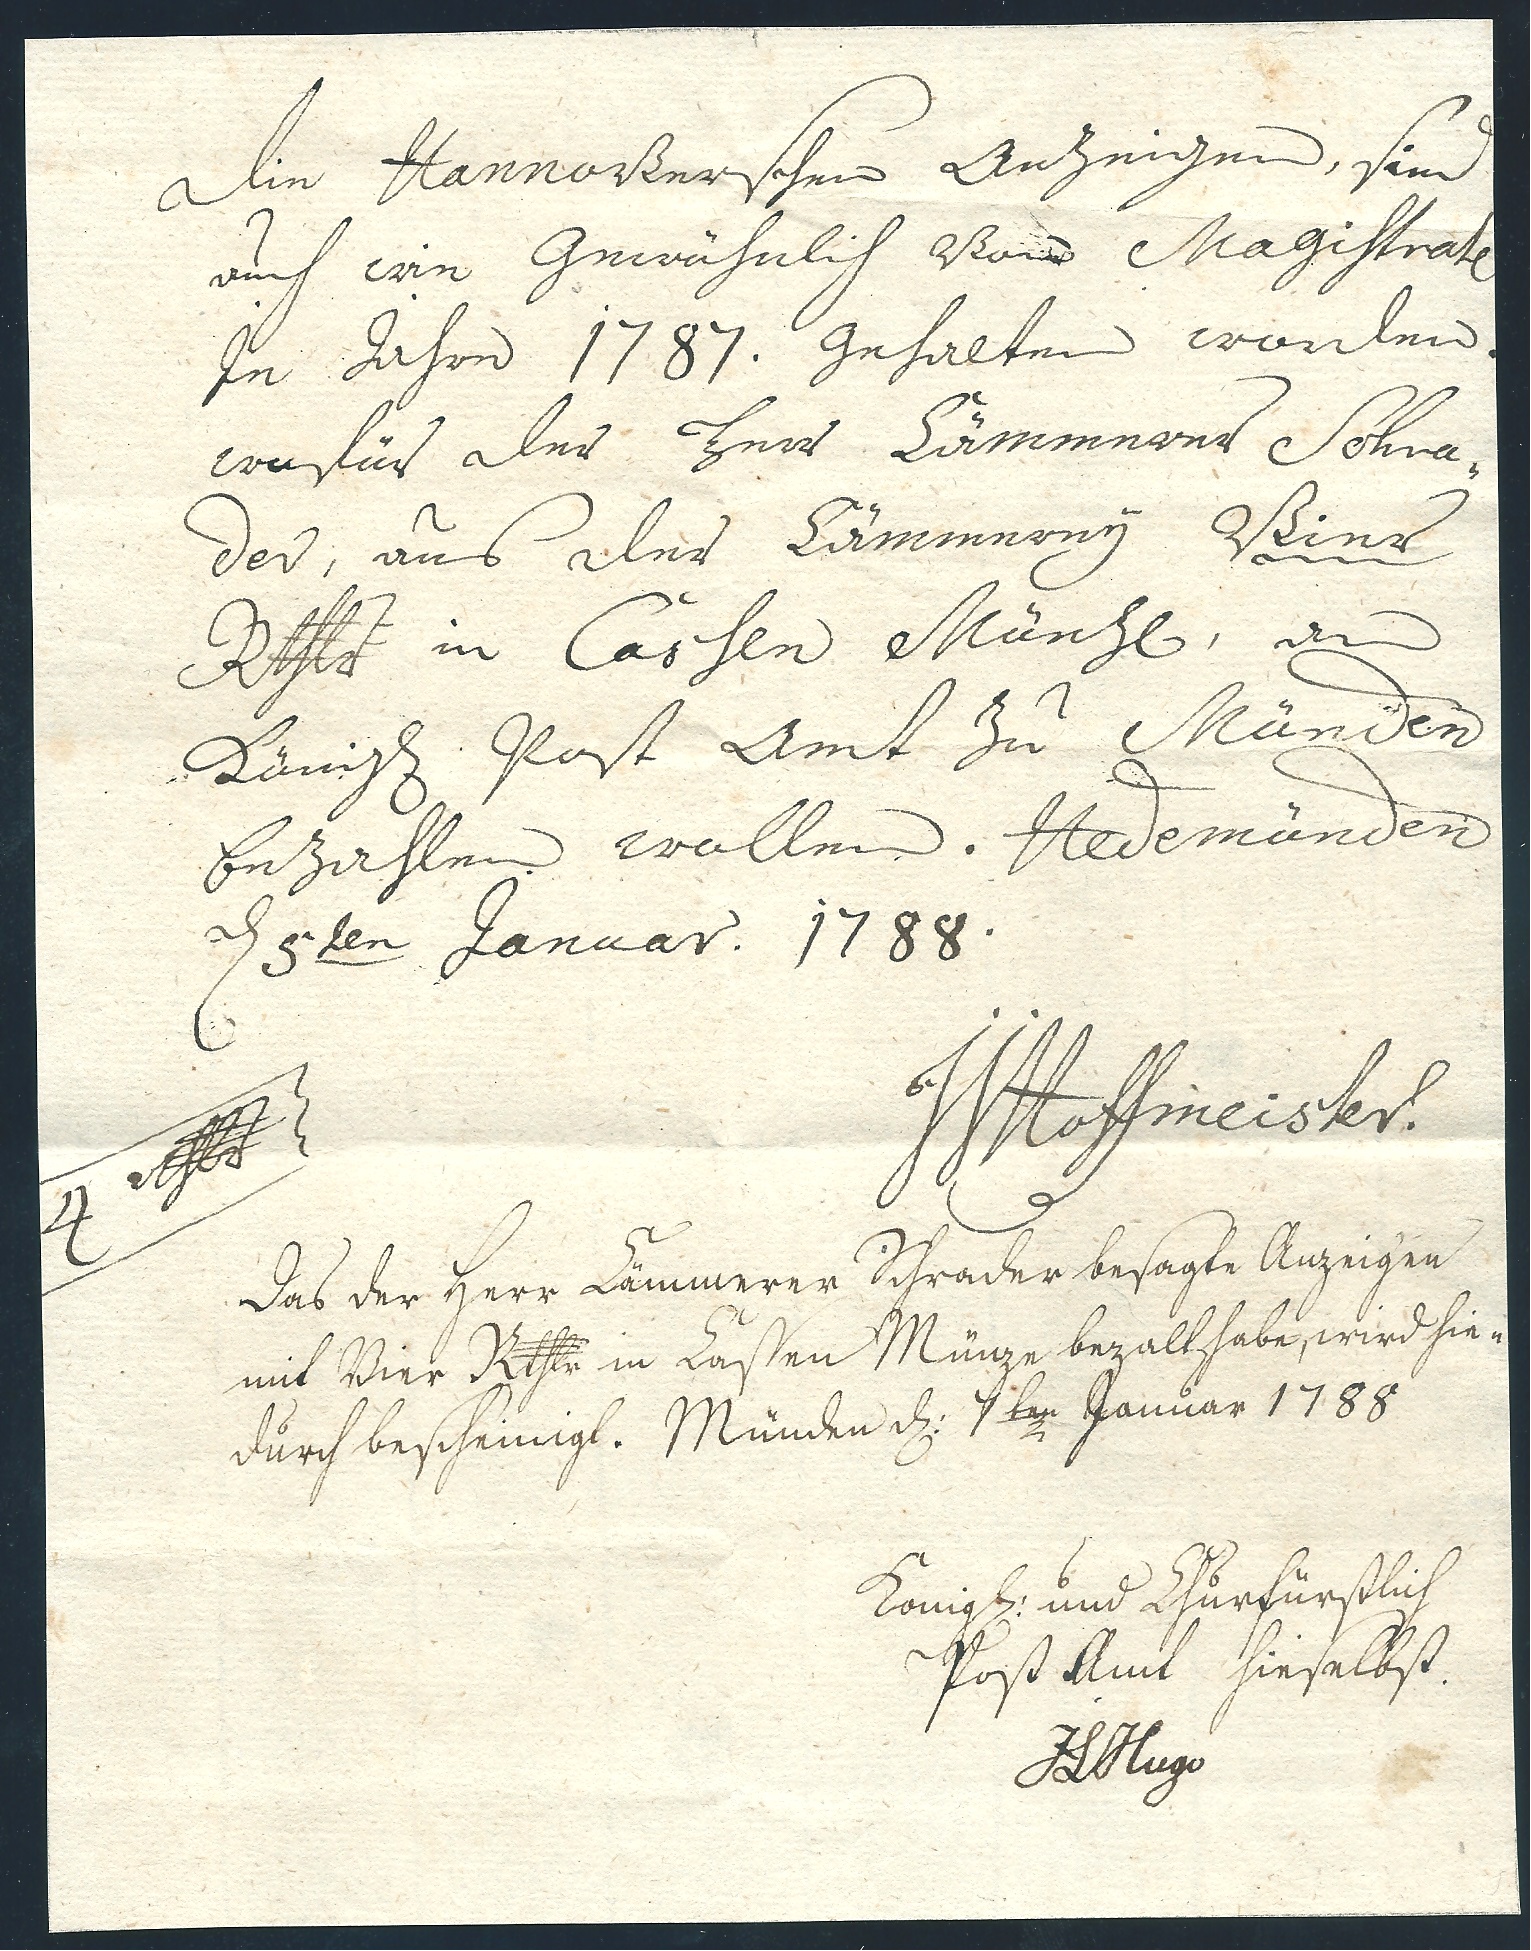 Die Hannoverschen Anzeigen, sind
auch wie Gewöhnlich von Magistrate
In Jahre 1787. gehalten worden.
wofür der Herr Cämmerer Schra-
der, aus der Cämmerey Vier
Rthlr in Cassen Müntze, an
Königl Post Amt zu Münden
bezahlen wollen. Hedemünden
d 5ten Januar. 1788.
JJHoffmeister.
4 Rthlr
Das der Herr Cämmerer Schrader besagte Anzeigen
mit Vier Rthlr in Cassen Münze bezalt habe, wird hie-
durch bescheinigt. Münden d: 7ten Januar 1788
Königl: und Churfürstlich
Post Amt hieselbst.
Hugo